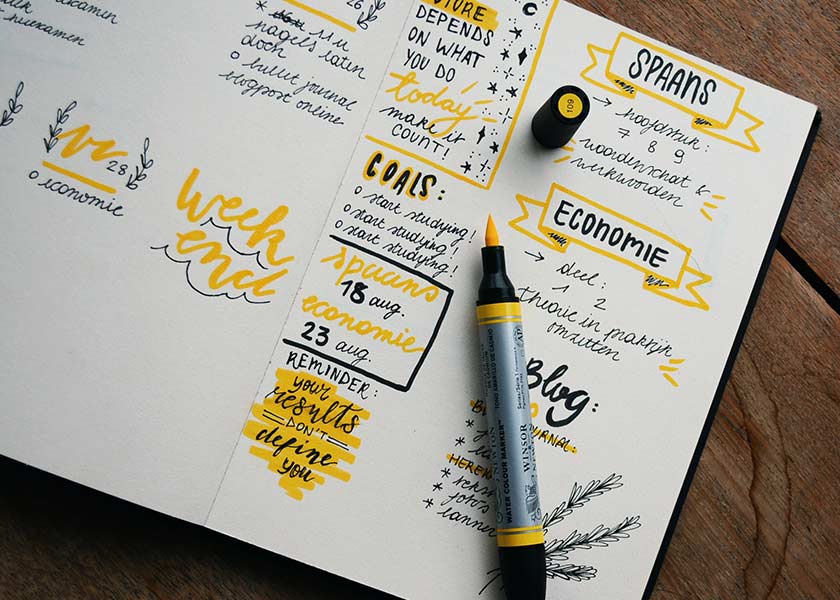 26
nagels laten
doen
o bullet journal
blogpost online
vr
28
o economie
week
end
DEPENDS
ON WHAT
YOU DO
today
make it
COUNT!
GOALS:
o start studying!
o start studying!
o start studying!
spaans
18 aug.
economie
23 aug.
REMINDER:
your
results
DON'T
define
you
SPAANS
→ hoofdstuk:
7 8 9
woordenschat &
werkwoorden
ECONOMIE
→ deel:
1 2
theorie in praktijk
omzetten
Blog:
109
WATER COLOUR MARKER™
WINSOR
NEWTON